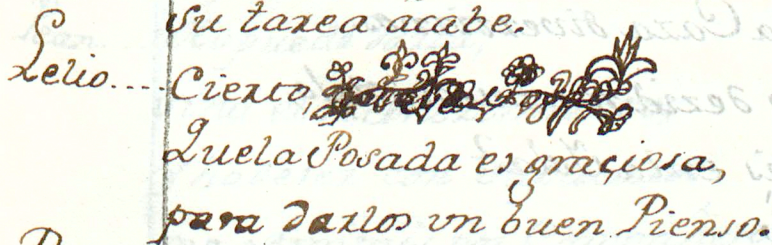 su tarea acabe.
Lelio.... Cierto,
Que la Posada es graciosa,
para darlos un buen Pienso.